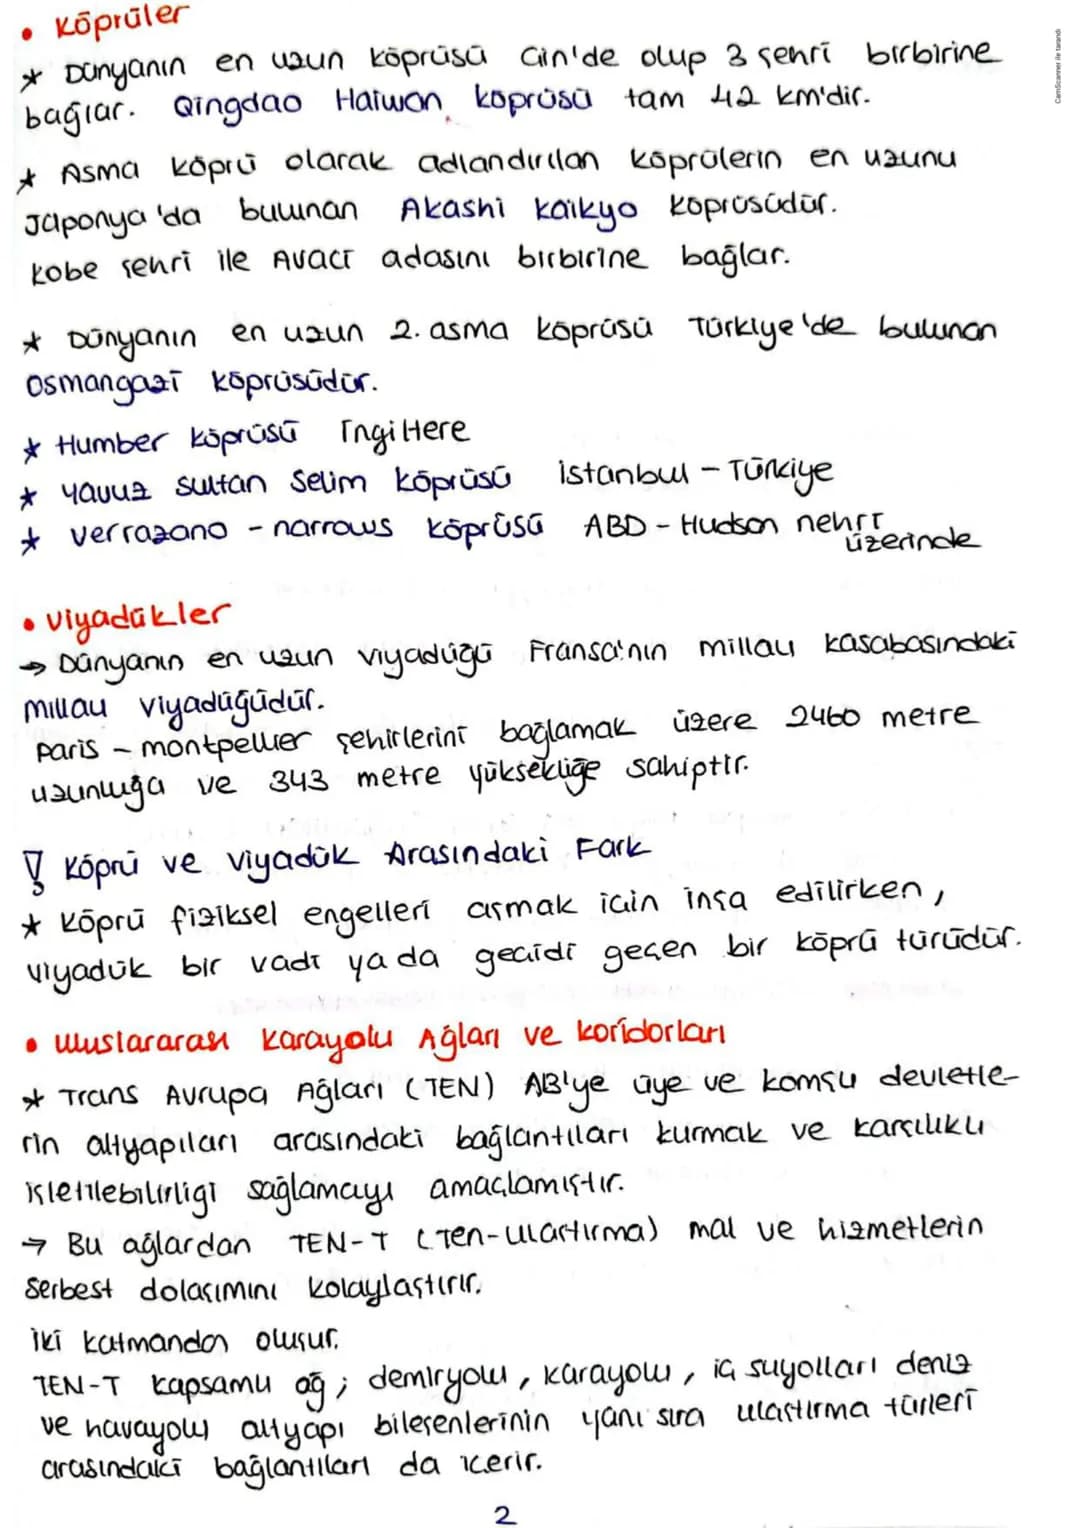 • Köprüler
* Dünyanın en uzun köprüsü Çin'de olup 3 şehri birbirine
bağlar. Qingdao Haiwan köprüsü tam 42 km'dir.
* Asma köprü olarak adlandırılan köprülerin en uzunu
Japonya'da bulunan Akashi Kaikyo köprüsüdür.
Kobe şehri ile Avaci adasını birbirine bağlar.
* Dünyanın en uzun 2. asma köprüsü Türkiye'de bulunan
Osmangazi köprüsüdür.
* Humber köprüsü İngiltere
* Yavuz Sultan Selim köprüsü İstanbul - Türkiye
* Verrazano - narrows köprüsü ABD - Hudson nehri
üzerinde
• Viyadükler
→ Dünyanın en uzun viyadüğü Fransa'nın millau kasabasındaki
millau viyadüğüdür.
Paris - montpellier şehirlerini bağlamak üzere 2460 metre
uzunluğa ve 343 metre yüksekliğe sahiptir.
! Köprü ve Viyadük Arasındaki Fark
* Köprü fiziksel engelleri aşmak için inşa edilirken,
viyadük bir vadi ya da geçidi geçen bir köprü türüdür.
• Uluslararası Karayolu Ağları ve koridorları
* Trans Avrupa Ağları (TEN) AB'ye üye ve komşu devletle-
rin altyapıları arasındaki bağlantıları kurmak ve karşılıklı
işletilebilirligi sağlamayı amaçlamıştır.
→ Bu ağlardan TEN-T (Ten-ulaştırma) mal ve hizmetlerin
serbest dolaşımını kolaylaştırır.
İki katmandan oluşur.
TEN-T kapsamlı ağ; demiryolu, karayolu, iç suyolları deniz
ve havayolu altyapı bileşenlerinin yanı sıra ulaştırma türleri
arasındaki bağlantıları da içerir.
2
CamScanner ile tarandı